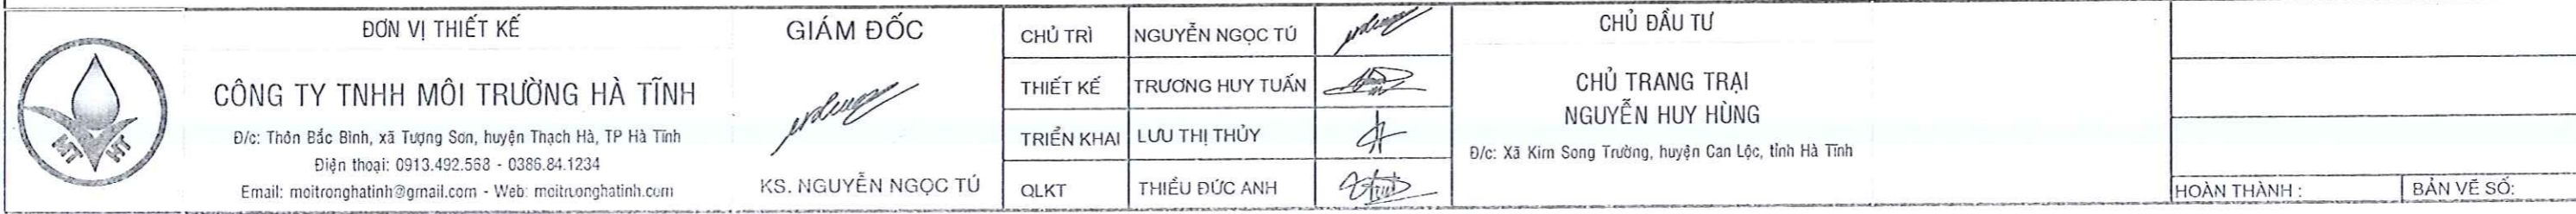 MT HT
ĐƠN VỊ THIẾT KẾ
CÔNG TY TNHH MÔI TRƯỜNG HÀ TĨNH
Đ/c: Thôn Bắc Bình, xã Tượng Sơn, huyện Thạch Hà, TP Hà Tĩnh
Điện thoại: 0913.492.568 - 0386.84.1234
Email: moitronghatinh@gmail.com - Web: moitruonghatinh.com
GIÁM ĐỐC
KS. NGUYỄN NGỌC TÚ
CHỦ TRÌ NGUYỄN NGỌC TÚ
THIẾT KẾ TRƯƠNG HUY TUẤN
TRIỂN KHAI LƯU THỊ THỦY
QLKT THIỀU ĐỨC ANH
CHỦ ĐẦU TƯ
CHỦ TRANG TRẠI
NGUYỄN HUY HÙNG
Đ/c: Xã Kim Song Trường, huyện Can Lộc, tỉnh Hà Tĩnh
HOÀN THÀNH : BẢN VẼ SỐ: